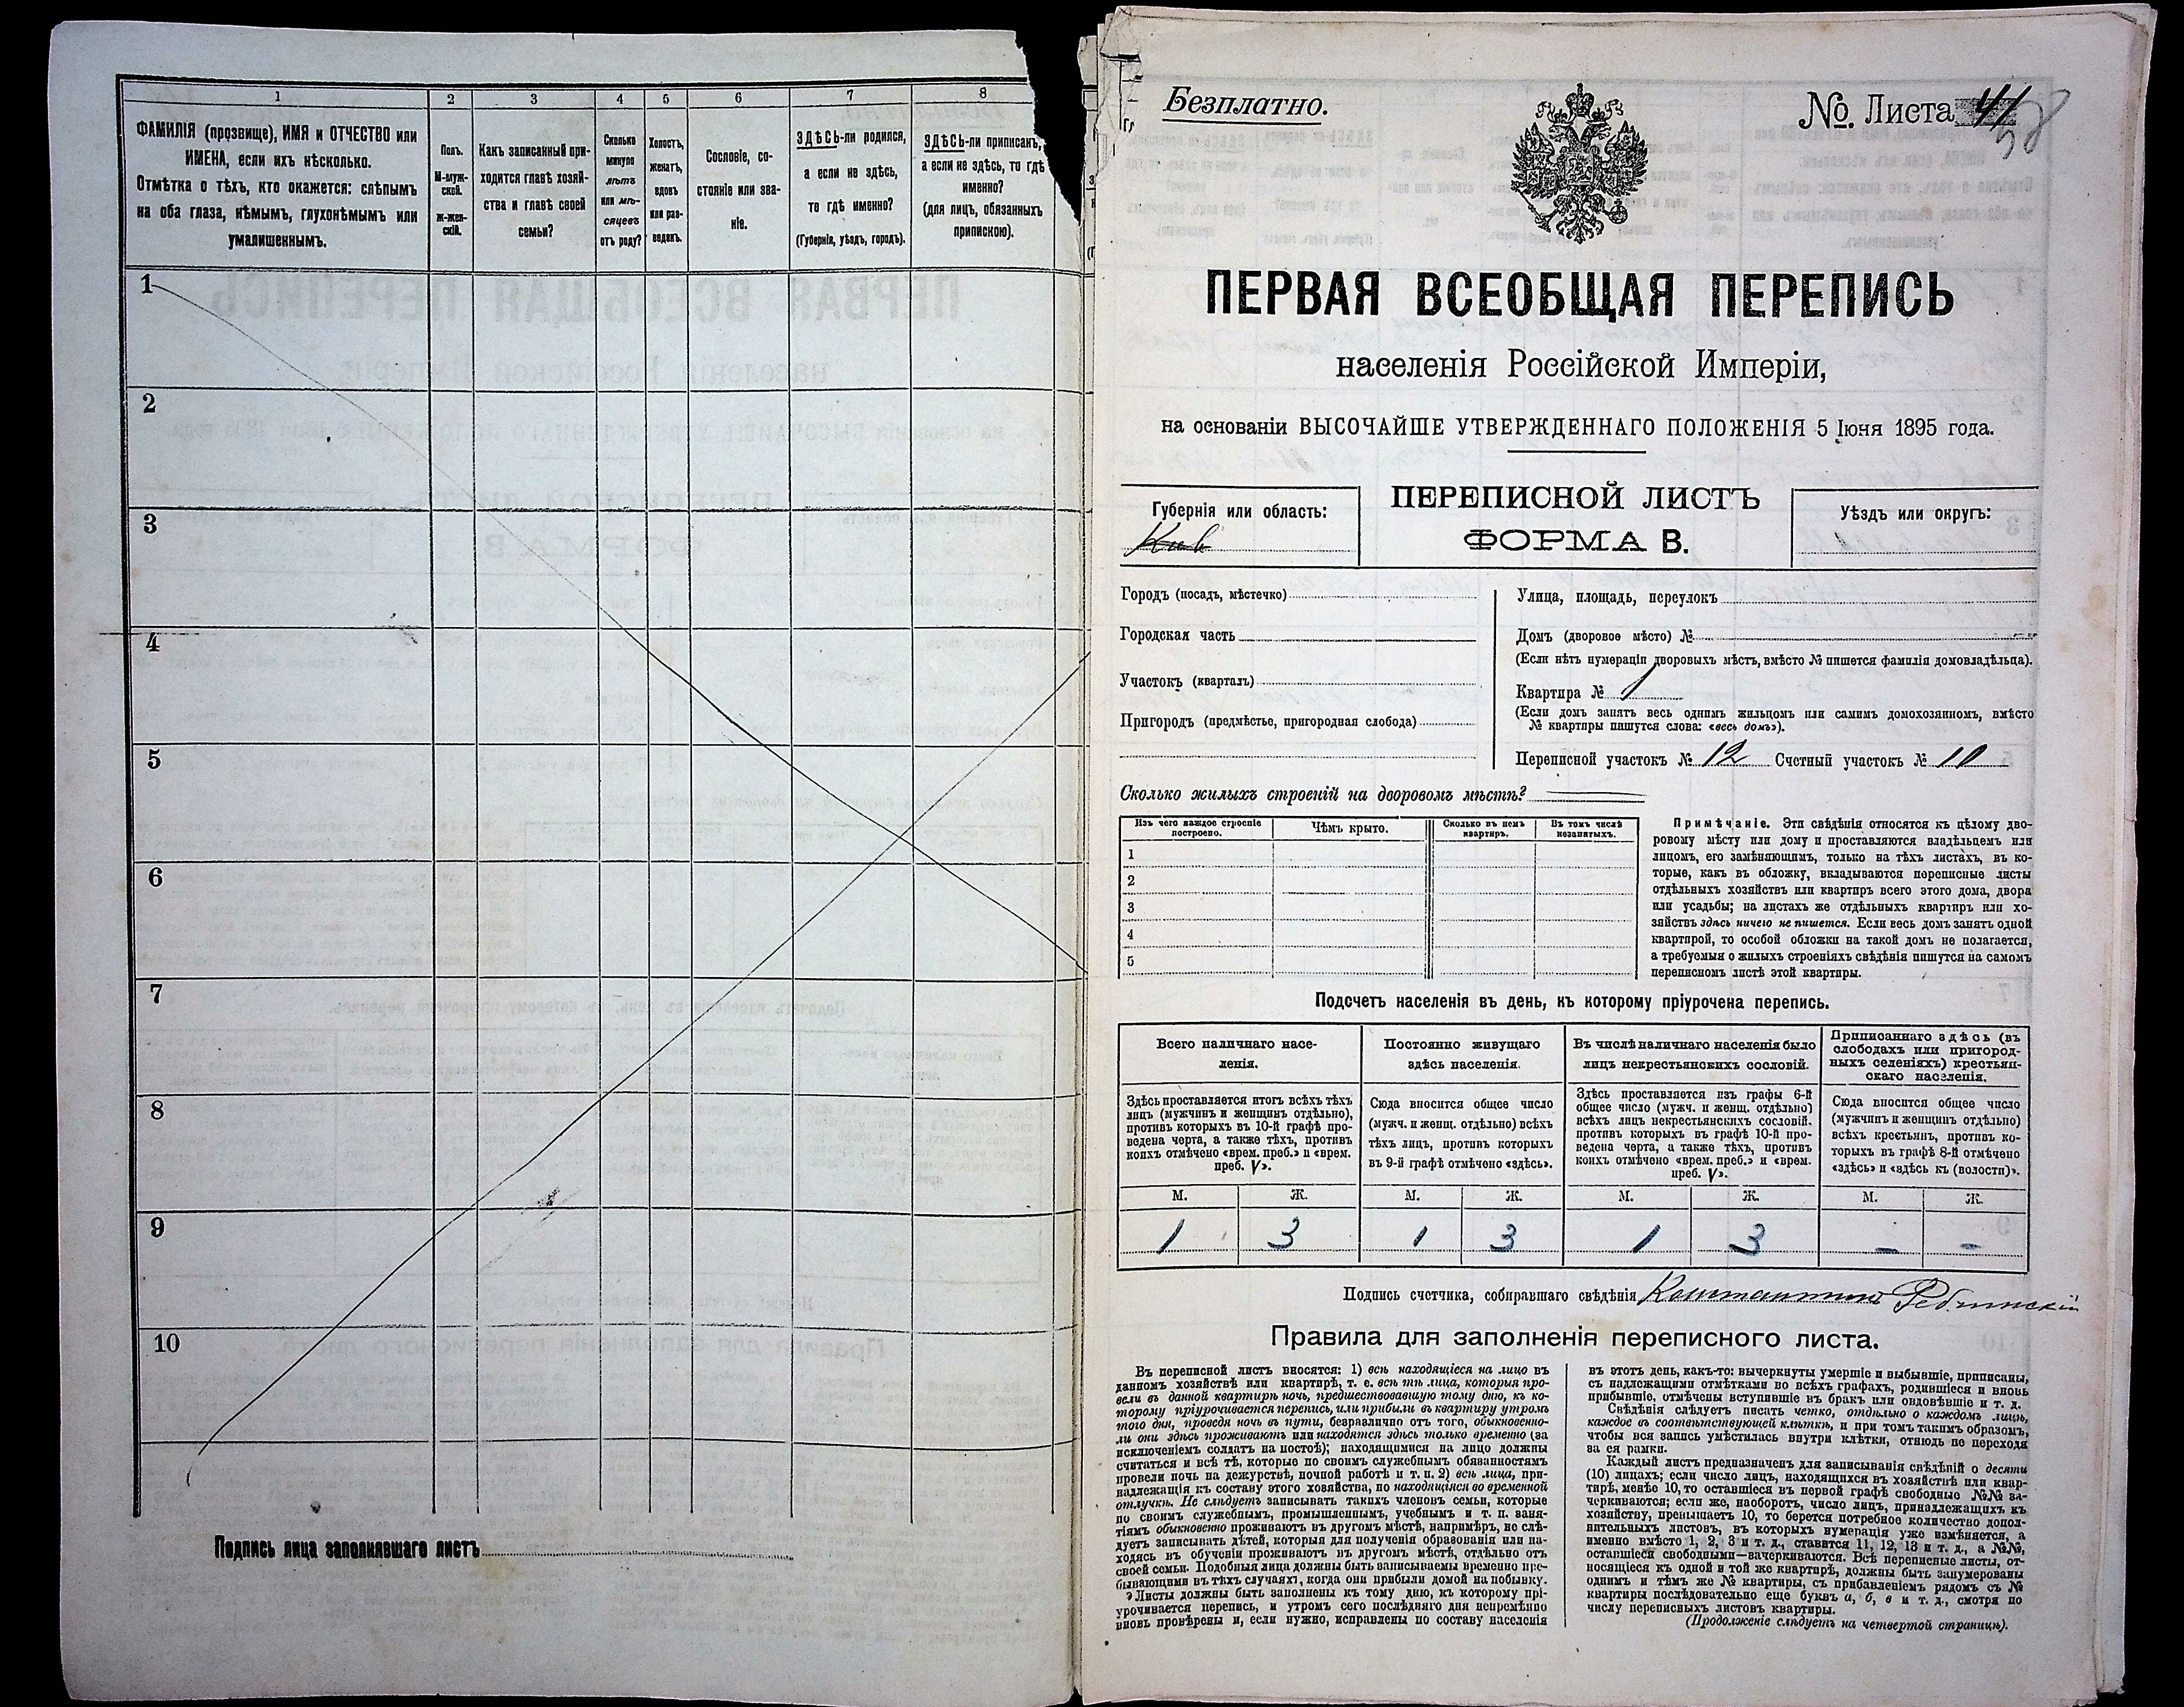 1
2
3
4
5
6
7
8
ФАМИЛІЯ (прозвище), ИМЯ и ОТЧЕСТВО или
ИМЕНА, если ихъ нѣсколько.
Отмѣтка о тѣхъ, кто окажется: слѣпымъ
на оба глаза, нѣмымъ, глухонѣмымъ или
умалишеннымъ.
Полъ.
М-муж-
ской.
ж-жен-
скій.
Какъ записанный при-
ходится главѣ хозяй-
ства и главѣ своей
семьи?
Сколько
минуло
лѣтъ
или мѣ-
сяцевъ
отъ роду?
Холостъ,
женатъ,
вдовъ
или раз-
веденъ.
Сословіе, со-
стояніе или зва-
ніе.
ЗДѢСЬ-ли родился,
а если не здѣсь,
то гдѣ именно?
(Губернія, уѣздъ, городъ).
ЗДѢСЬ-ли приписанъ,
а если не здѣсь, то гдѣ
именно?
(для лицъ, обязанныхъ
припискою).
1
2
3
4
5
6
7
8
9
10
Подпись лица заполнявшаго листъ
Безплатно.
№ Листа 41
58
ПЕРВАЯ ВСЕОБЩАЯ ПЕРЕПИСЬ
населенія Россійской Имперіи,
на основаніи ВЫСОЧАЙШЕ УТВЕРЖДЕННАГО ПОЛОЖЕНІЯ 5 Іюня 1895 года.
Губернія или область:
Кiев
ПЕРЕПИСНОЙ ЛИСТЪ
ФОРМА В.
Уѣздъ или округъ:
Городъ (посадъ, мѣстечко)
Городская часть
Участокъ (кварталъ)
Пригородъ (предмѣстье, пригородная слобода)
Улица, площадь, переулокъ
Домъ (дворовое мѣсто) №
(Если нѣтъ нумераціи дворовыхъ мѣстъ, вмѣсто № пишется фамилія домовладѣльца).
Квартира № 1
(Если домъ занятъ весь однимъ жильцомъ или самимъ домохозяиномъ, вмѣсто
№ квартиры пишутся слова: «весь домъ»).
Переписной участокъ № 12 Счетный участокъ № 10
Сколько жилыхъ строеній на дворовомъ мѣстѣ?
Изъ чего каждое строеніе
построено.
Чѣмъ крыто.
Сколько въ немъ
квартиръ.
Въ томъ числѣ
незанятыхъ.
1
2
3
4
5
Примѣчаніе. Эти свѣдѣнія относятся къ цѣлому дво-
ровому мѣсту или дому и проставляются владѣльцемъ или
лицомъ, его замѣняющимъ, только на тѣхъ листахъ, въ ко-
торые, какъ въ обложку, вкладываются переписные листы
отдѣльныхъ хозяйствъ или квартиръ всего этого дома, двора
или усадьбы; на листахъ же отдѣльныхъ квартиръ или хо-
зяйствъ здѣсь ничего не пишется. Если весь домъ занятъ одной
квартирой, то особой обложки на такой домъ не полагается,
а требуемыя о жилыхъ строеніяхъ свѣдѣнія пишутся на самомъ
переписномъ листѣ этой квартиры.
Подсчетъ населенія въ день, къ которому пріурочена перепись.
Всего наличнаго насе-
ленія.
Постоянно живущаго
здѣсь населенія.
Въ числѣ наличнаго населенія было
лицъ некрестьянскихъ сословій.
Приписаннаго здѣсь (въ
слободахъ или пригород-
ныхъ селеніяхъ) крестьян-
скаго населенія.
Здѣсь проставляется итогъ всѣхъ тѣхъ
лицъ (мужчинъ и женщинъ отдѣльно),
противъ которыхъ въ 10-й графѣ про-
ведена черта, а также тѣхъ, противъ
коихъ отмѣчено «врем. преб.» и «врем.
преб. V».
Сюда вносится общее число
(мужч. и женщ. отдѣльно) всѣхъ
тѣхъ лицъ, противъ которыхъ
въ 9-й графѣ отмѣчено «здѣсь».
Здѣсь проставляется изъ графы 6-й
общее число (мужч. и женщ. отдѣльно)
всѣхъ лицъ некрестьянскихъ сословій.
противъ которыхъ въ графѣ 10-й про-
ведена черта, а также тѣхъ, противъ
коихъ отмѣчено «врем. преб.» и «врем.
преб. V».
Сюда вносится общее число
(мужчинъ и женщинъ отдѣльно)
всѣхъ крестьянъ, противъ ко-
торыхъ въ графѣ 8-й отмѣчено
«здѣсь» и «здѣсь къ (волости)».
М. Ж. М. Ж. М. Ж. М. Ж.
1 3 1 3 1 3 - -
Подпись счетчика, собиравшаго свѣдѣнія Константинъ
Правила для заполненія переписного листа.
Въ переписной листъ вносятся: 1) всѣ находящіеся на лицо въ
данномъ хозяйствѣ или квартирѣ, т. е. всѣ тѣ лица, которыя про-
вели въ данной квартирѣ ночь, предшествовавшую тому дню, къ ко-
торому пріурочивается перепись, или прибыли въ квартиру утромъ
того дня, проведя ночь въ пути, безразлично отъ того, обыкновенно-
ли они здѣсь проживаютъ или находятся здѣсь только временно (за
исключеніемъ солдатъ на постоѣ); находящимися на лицо должны
считаться и всѣ тѣ, которые по своимъ служебнымъ обязанностямъ
провели ночь на дежурствѣ, ночной работѣ и т. п. 2) всѣ лица, при-
надлежащія къ составу этого хозяйства, но находящіяся во временной
отлучкѣ. Не слѣдуетъ записывать такихъ членовъ семьи, которые
по своимъ служебнымъ, промышленнымъ, учебнымъ и т. п. заня-
тіямъ обыкновенно проживаютъ въ другомъ мѣстѣ, напримѣръ, не слѣ-
дуетъ записывать дѣтей, которыя для полученія образованія или на-
ходясь въ обученіи проживаютъ въ другомъ мѣстѣ, отдѣльно отъ
своей семьи. Подобныя лица должны быть записываемы временно пре-
бывающими въ тѣхъ случаяхъ, когда они прибыли домой на побывку.
Листы должны быть заполнены къ тому дню, къ которому прі-
урочивается перепись, и утромъ сего послѣдняго дня непремѣнно
вновь провѣрены и, если нужно, исправлены по составу населенія
въ этотъ день, какъ-то: вычеркнуты умершіе и выбывшіе, приписаны,
съ надлежащими отмѣтками во всѣхъ графахъ, родившіеся и вновь
прибывшіе, отмѣчены вступившіе въ бракъ или овдовѣвшіе и т. д.
Свѣдѣнія слѣдуетъ писать четко, отдѣльно о каждомъ лицѣ,
каждое въ соотвѣтствующей клѣткѣ, и при томъ такимъ образомъ,
чтобы вся запись умѣстилась внутри клѣтки, отнюдь не переходя
за ея рамки.
Каждый листъ предназначенъ для записыванія свѣдѣній о десяти
(10) лицахъ; если число лицъ, находящихся въ хозяйствѣ или квар-
тирѣ, менѣе 10, то оставшіеся въ первой графѣ свободные №№ за-
черкиваются; если же, наоборотъ, число лицъ, принадлежащихъ къ
хозяйству, превышаетъ 10, то берется потребное количество допол-
нительныхъ листовъ, въ которыхъ нумерація уже измѣняется, а
именно вмѣсто 1, 2, 3 и т. д., ставится 11, 12, 13 и т. д., а №№,
оставшіеся свободными—зачеркиваются. Всѣ переписные листы, от-
носящіеся къ одной и той же квартирѣ, должны быть занумерованы
однимъ и тѣмъ же № квартиры, съ прибавленіемъ рядомъ съ №
квартиры послѣдовательно еще буквъ а, б, в и т. д., смотря по
числу переписныхъ листовъ квартиры.
(Продолженіе слѣдуетъ на четвертой страницѣ).